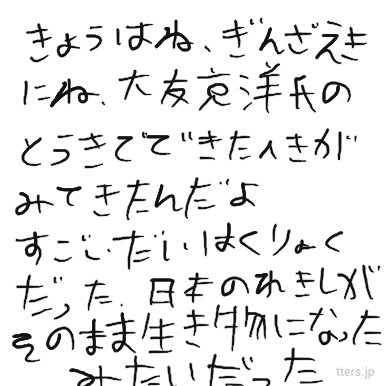 きょうはね、ぎんざえき
にね、大友克洋氏の
とうきてできたえきが
みてきたんだよ
すごーだいじいはくりょく
だった。日本のれきしが
そのまま生き物になった
みたいだった
tters.jp